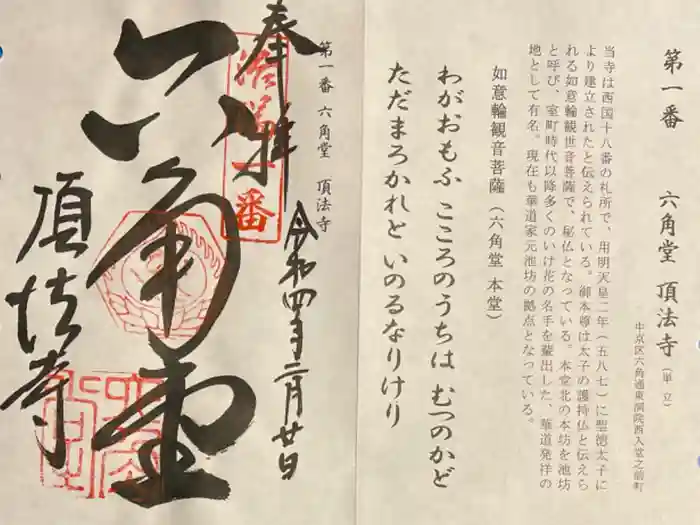 第一番 六角堂 頂法寺 (単立)
中京区六角通東洞院西入堂之前町
当寺は西国十八番の札所で、用明天皇二年(五八七)に聖徳太子に
より建立されたと伝えられている。御本尊は太子の護持仏と伝えら
れる如意輪観世音菩薩で、秘仏となっている。本堂北の本坊を池坊
と呼び、室町時代以降多くのいけ花の名手を輩出した、華道発祥の
地として有名。現在も華道家元池坊の拠点となっている。
如意輪観音菩薩(六角堂 本堂)
わがおもふ こころのうちは むつのかど
ただまろかれと いのるなりけり
第一番 六角堂 頂法寺
奉拝
令和四年二月廿日
洛陽一番
六角堂
頂法寺